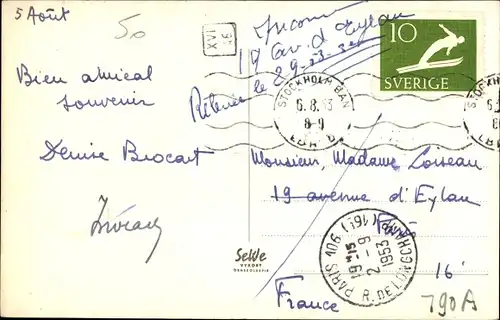 5 Août
50
XVI
Inconnu
19 av. d'Eylau
Retour le
10
SVERIGE
STOCKHOLM BAN
6.8.53
8-9
Bien amical
souvenir
Denise Brocart
Monsieur, Madame Loiseau
19 avenue d'Eylau
Paris
16e
France
PARIS 106 (16e)
R. DE LONGCHAMP
19H15
2 - 9
1953
SeWe
VYKORT
790A